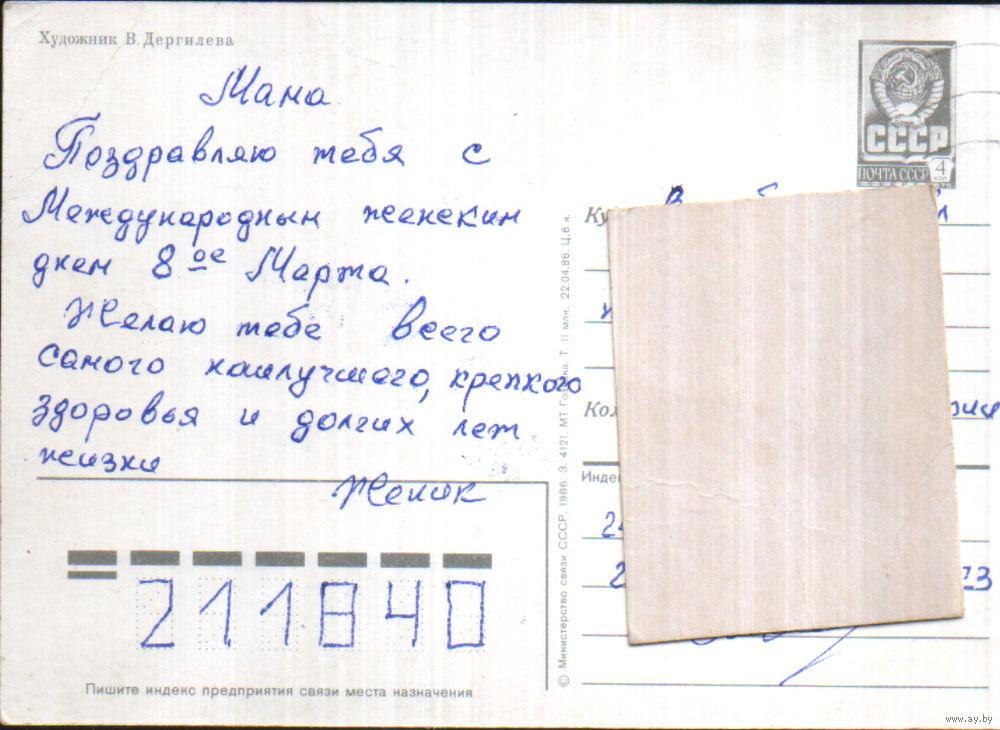 Художник В. Дергилева
Мама
Поздравляю тебя с
Международным женским
днем 8ое Марта.
Желаю тебе всего
самого наилучшего, крепкого
здоровья и долгих лет
жизни
Женик
СССР
ПОЧТА СССР 4 коп
1976
Ку
Ко
Инде
73
211840
Пишите индекс предприятия связи места назначения
© Министерство связи СССР, 1986. З. 4121. МТ Го ка. Т. 11 млн. 22.04.86. Ц.6 к.
www.ay.by